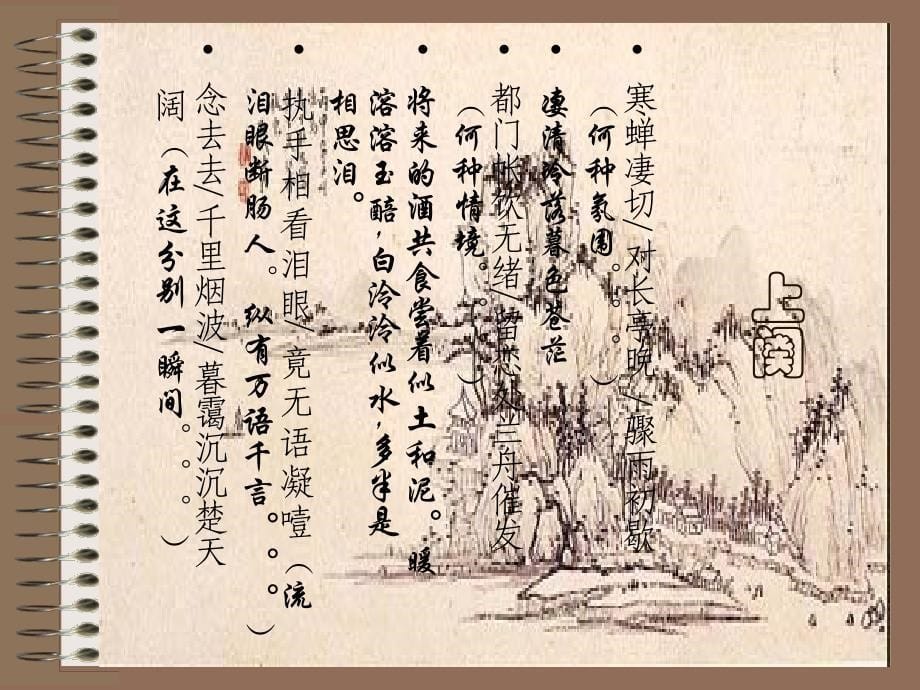 上阕
寒蝉凄切/ 对长亭晚/ /骤雨初歇
（何种氛围。。。）
凄清冷落暮色苍茫
都门帐饮无绪/ 留恋处兰舟催发
（何种情境。。。）
将来的酒共食尝着似土和泥。暖
溶溶玉醅，白泠泠似水，多半是
相思泪。
执手相看泪眼/ 竟无语凝噎（流
泪眼断肠人。纵有万语千言。。。）
念去去/千里烟波/暮霭沉沉楚天
阔（在这分别一瞬间。。。）